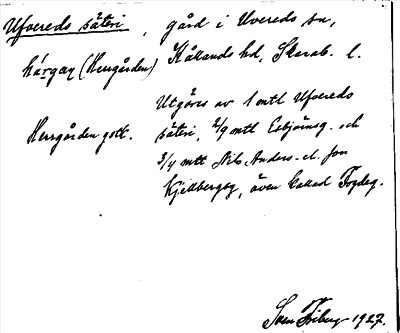 Ufvereds säteri, gård i Uvereds sn,
hárgaʒ (Herrgården) Kållands hd, Skarab. l.
Utgöres av 1 mtl Ufvereds
Herrgården gott. säteri, 2/9 mtl Esbjörnsg. och
3/4 mtl Nils Anders- el. Jon
Kjellbergsg, även kallad Fogdeg.
Sven Friberg 1927.